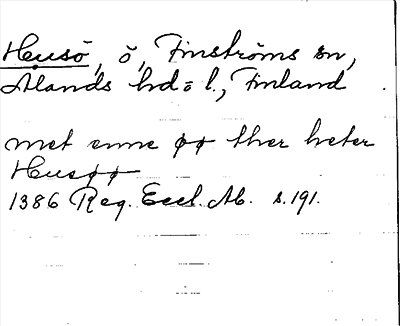 Husö, ö, Finströms sn,
Ålands hd o l., Finland
met enne øø ther heter
Husøø
1386 Reg. Eccl. Ab. s. 191.